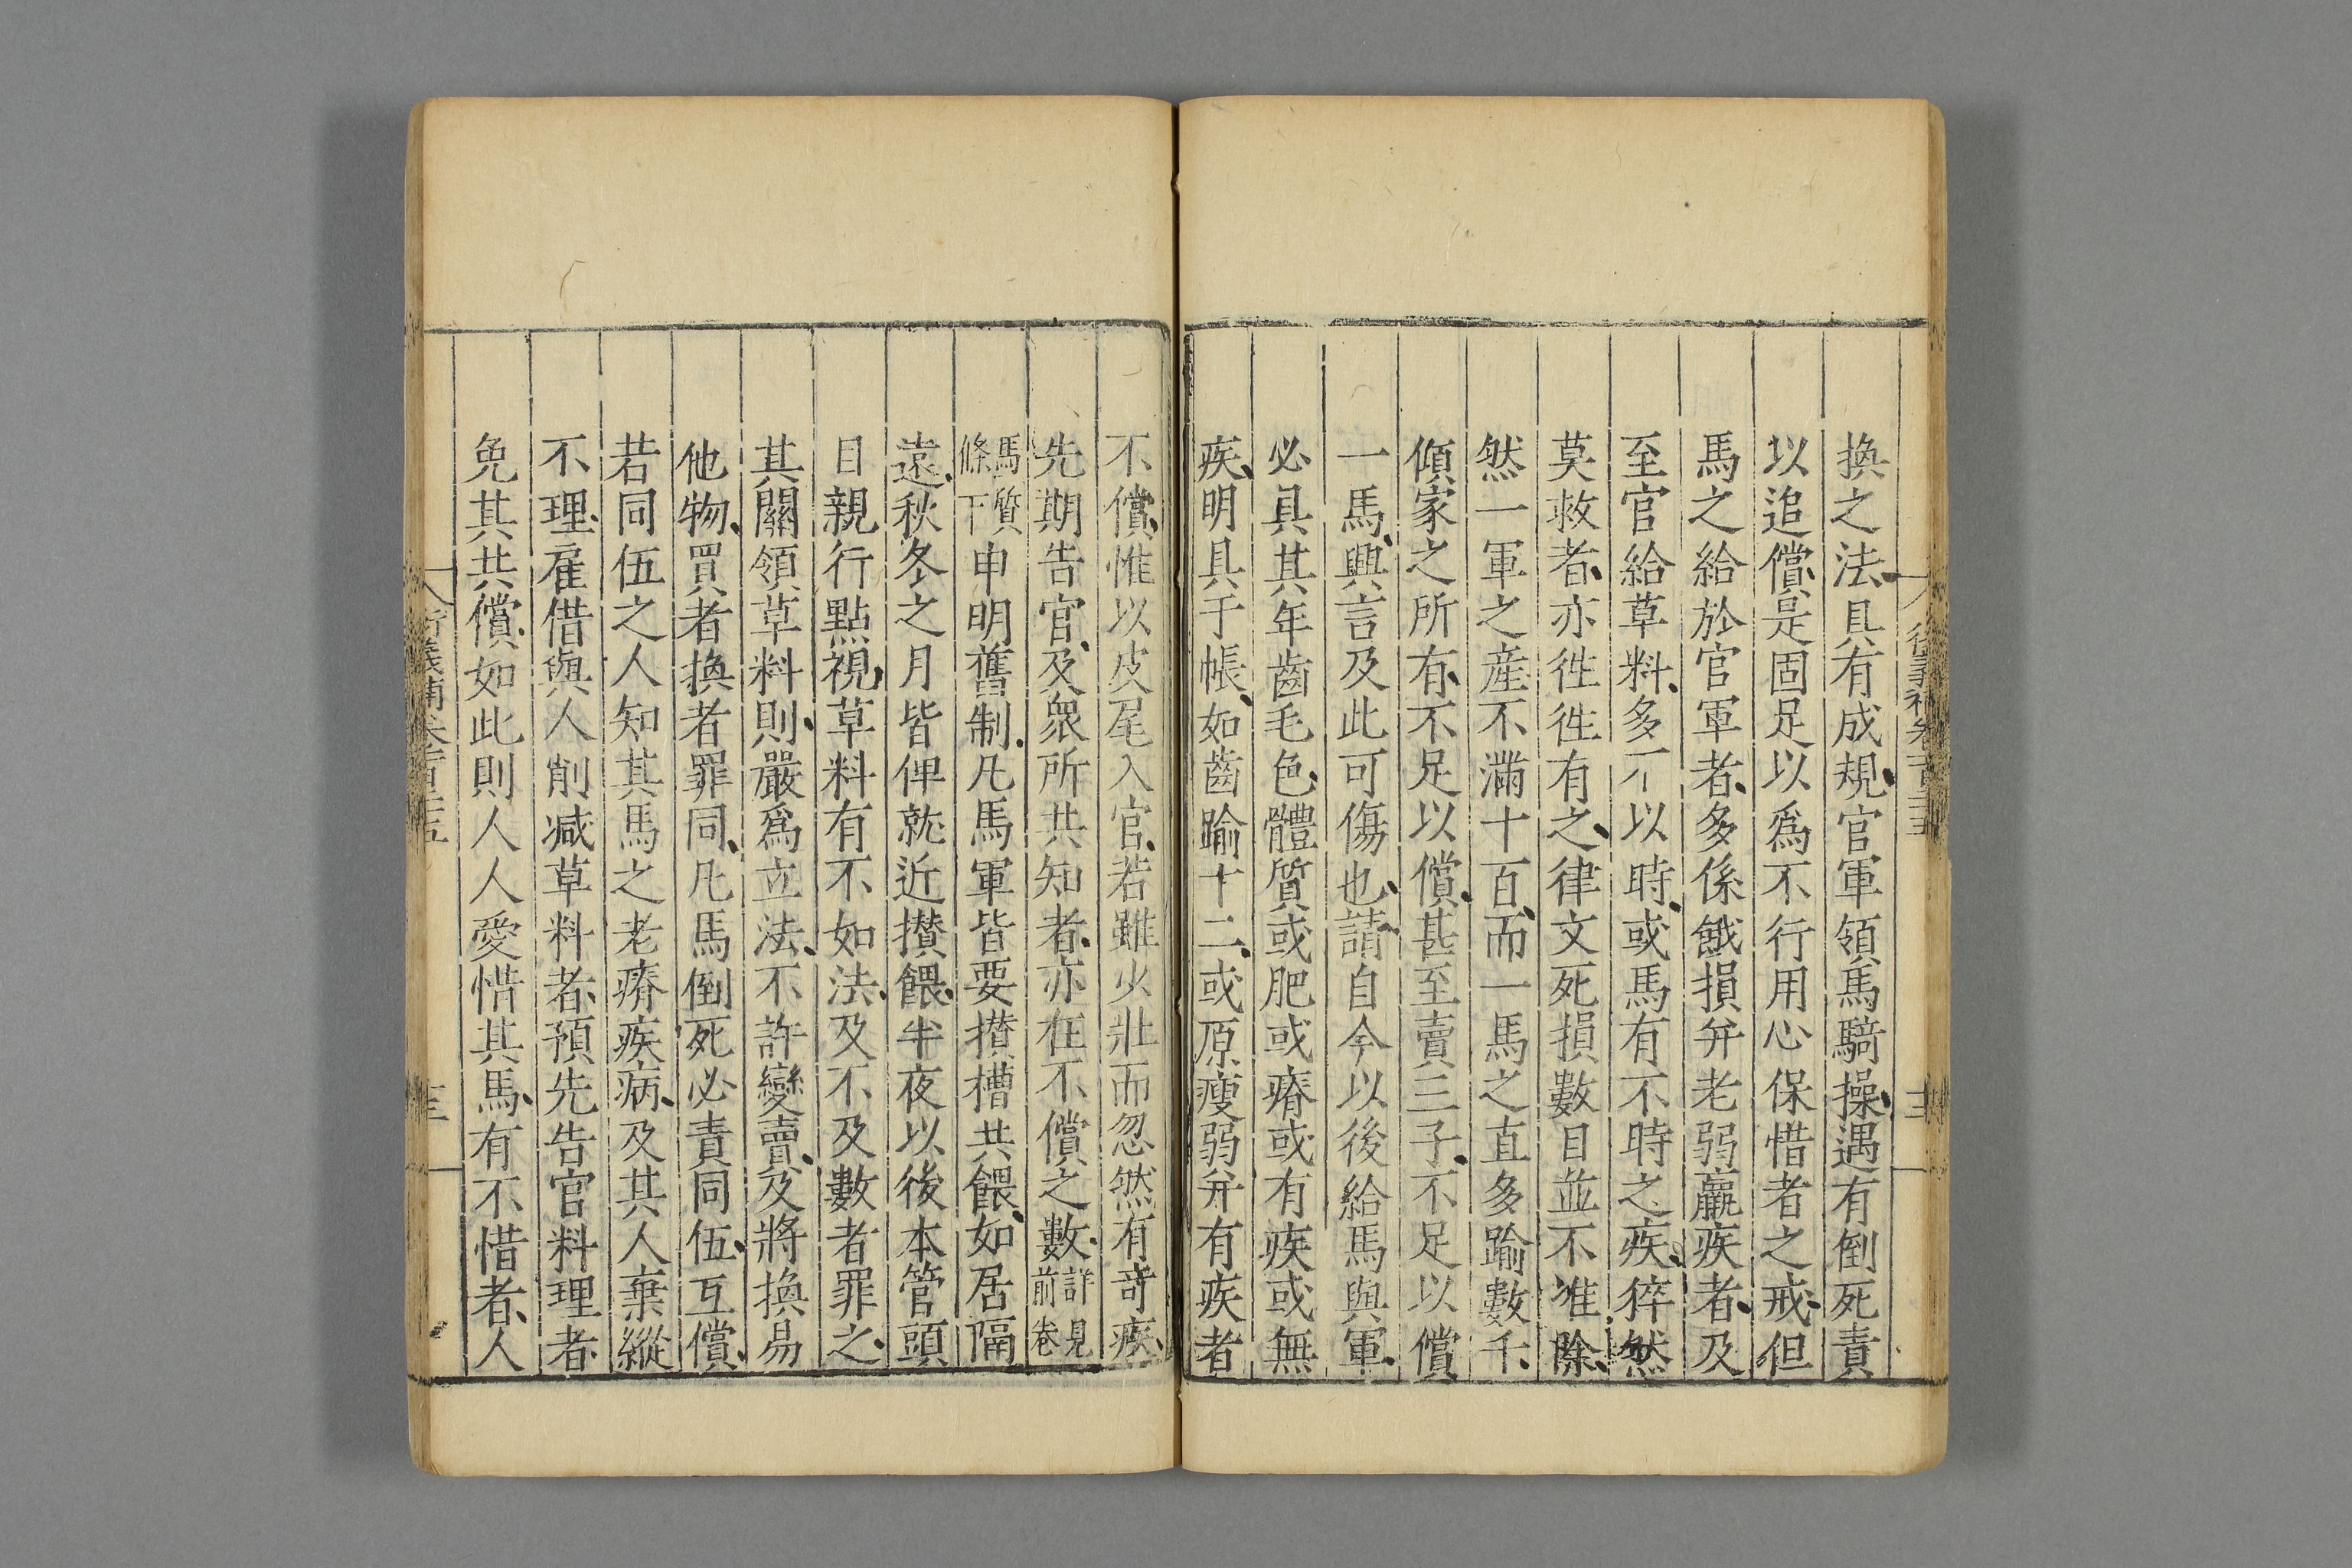 換之法、具有成規、官軍領馬騎操、遇有倒死責
以追償、是固足以爲不行用心保惜者之戒、但
馬之給於官軍者、多係餓損并老弱羸疾者、及
至官給草料、多不以時、或馬有不時之疾、猝然
莫救者、亦徃徃有之、律文死損數目並不准除、
然一軍之産不滿十百、而一馬之直多踰數千、
傾家之所有、不足以償、甚至賣三子、不足以償
一馬、興言及此可傷也、請自今以後給馬與軍、
必具其年齒毛色、體質或肥或瘠或有疾或無
疾、明具于帳、如齒踰十二、或原瘦弱并有疾者
不償、惟以皮尾入官、若雖火壯而忽然有奇疾、
先期告官、及衆所共知者、亦在不償之數、詳見前卷
馬質條下申明舊制、凡馬軍皆要攅槽共餵、如居隔
遠、秋冬之月皆俾就近攅餵、半夜以後本管頭
目親行點視、草料有不如法、及不及數者罪之、
其關領草料、則嚴爲立法、不許變賣、及將換易
他物、買者換者罪同、凡馬倒死必責同伍、互償、
若同伍之人知其馬之老瘠疾病、及其人棄縱
不理、雇借與人削减草料者、預先告官料理者、
免其共償、如此則人人愛惜其馬、有不惜者、人